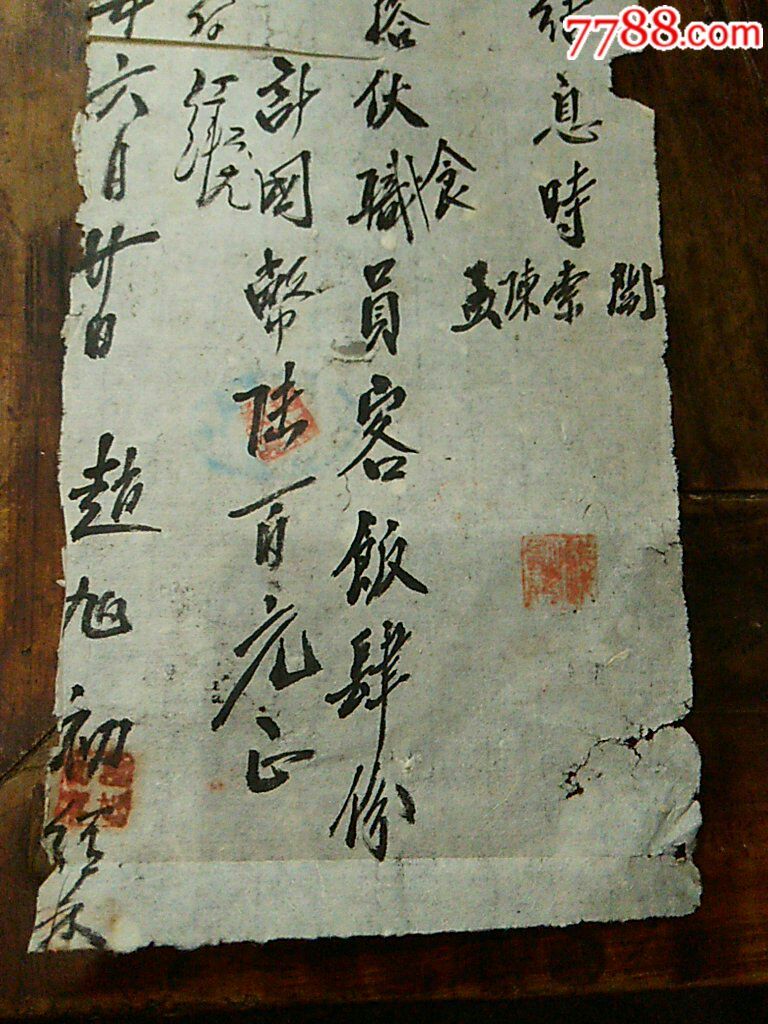 7788.com
結息時
閻索陳孟
食
搭伙職員客飯肆份
計國幣陸百元正
年六月廿日 趙旭初經長